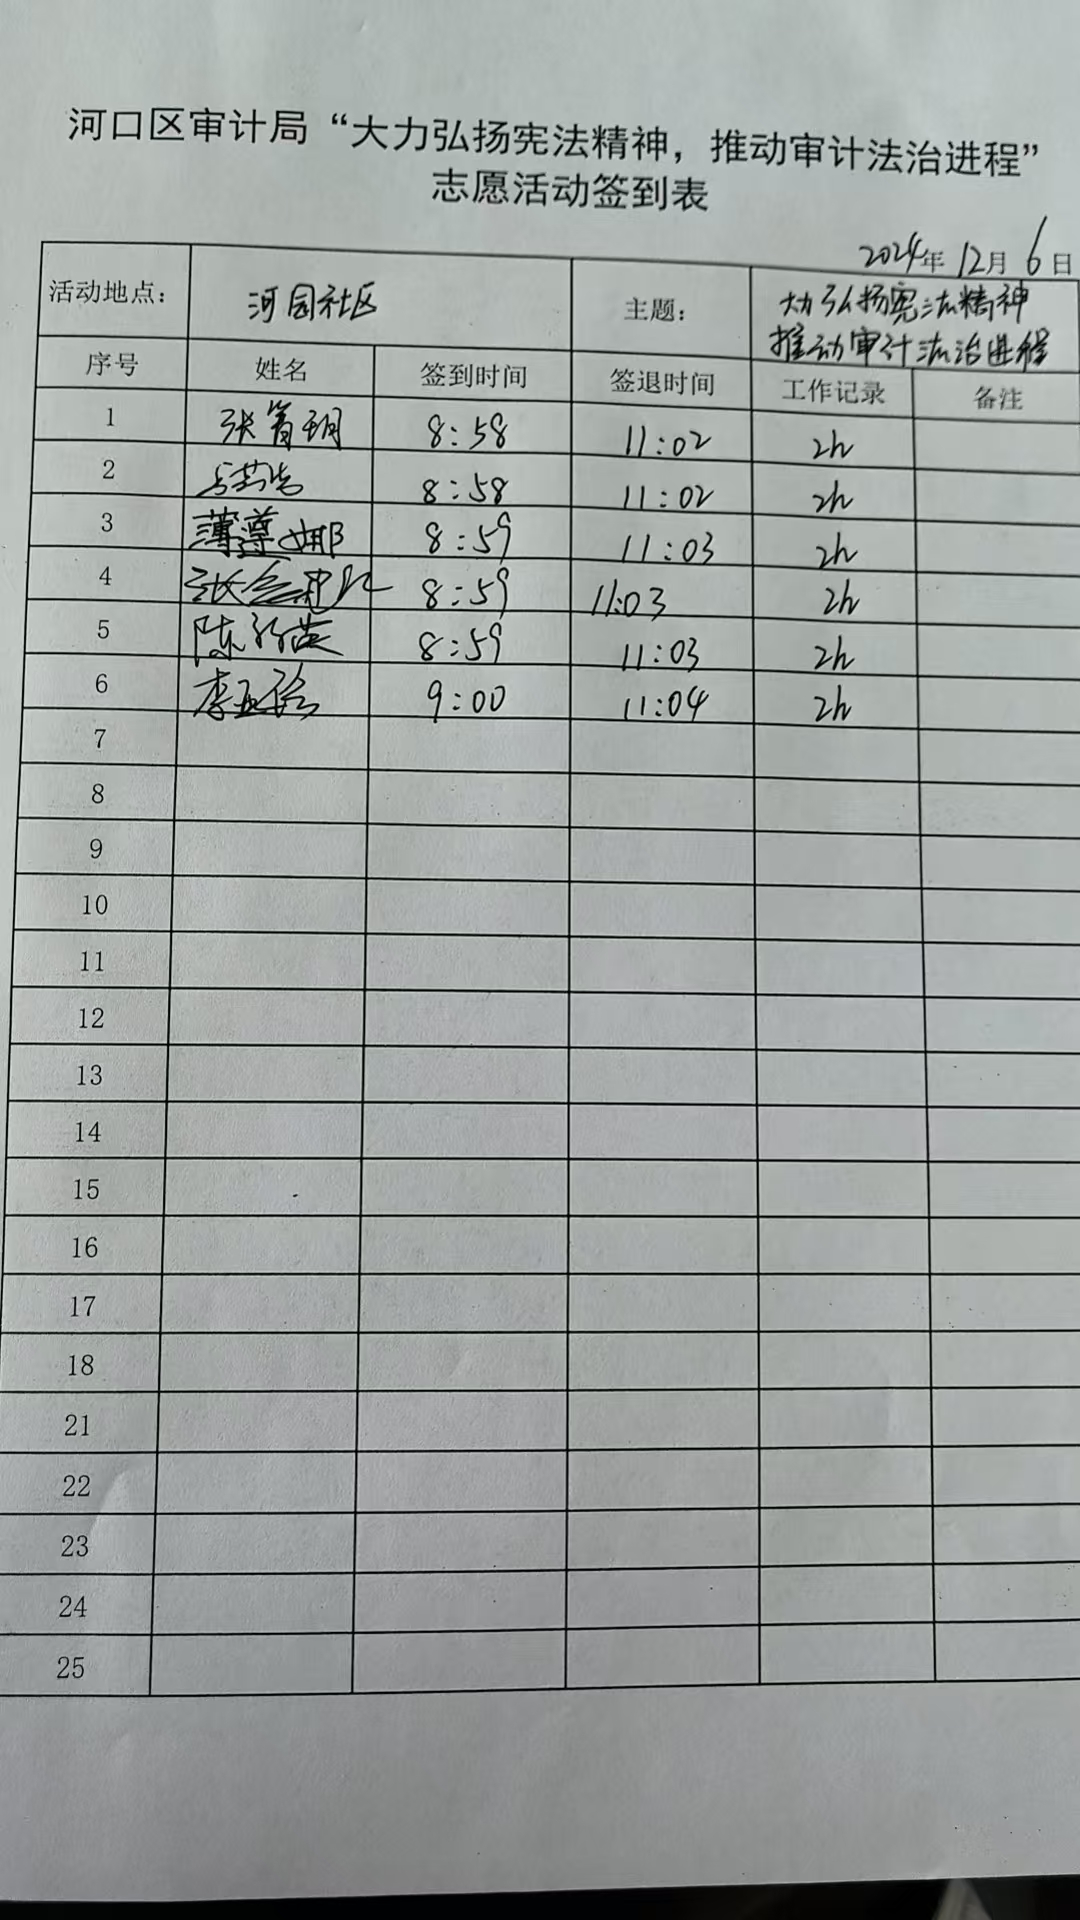 河口区审计局“大力弘扬宪法精神，推动审计法治进程”
志愿活动签到表
2024年 12月 6日
活动地点： 河园社区 主题： 大力弘扬宪法精神
推动审计法治进程
序号 姓名 签到时间 签退时间 工作记录 备注
1 张 8:58 11:02 2h
2 8:58 11:02 2h
3 薄遵娜 8:59 11:03 2h
4 张 8:59 11:03 2h
5 陈 8:59 11:03 2h
6 李 9:00 11:04 2h
7
8
9
10
11
12
13
14
15
16
17
18
21
22
23
24
25